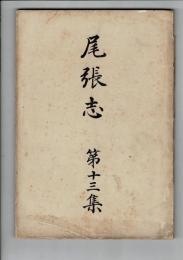 尾張志
第十三集